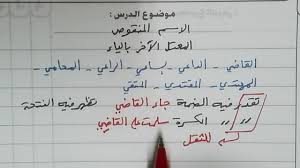 موضوع الدرس:
الاسم المنقوص
المعتل الآخر بالياء
القاضي - الداعي - الراعي - المحامي -
المهتدي - المقتدي - المتقي
تقدر فيه الضمة جاء القاضي تظهر فيه الفتحة
" " الكسرة سلمت على القاضي
للثقل